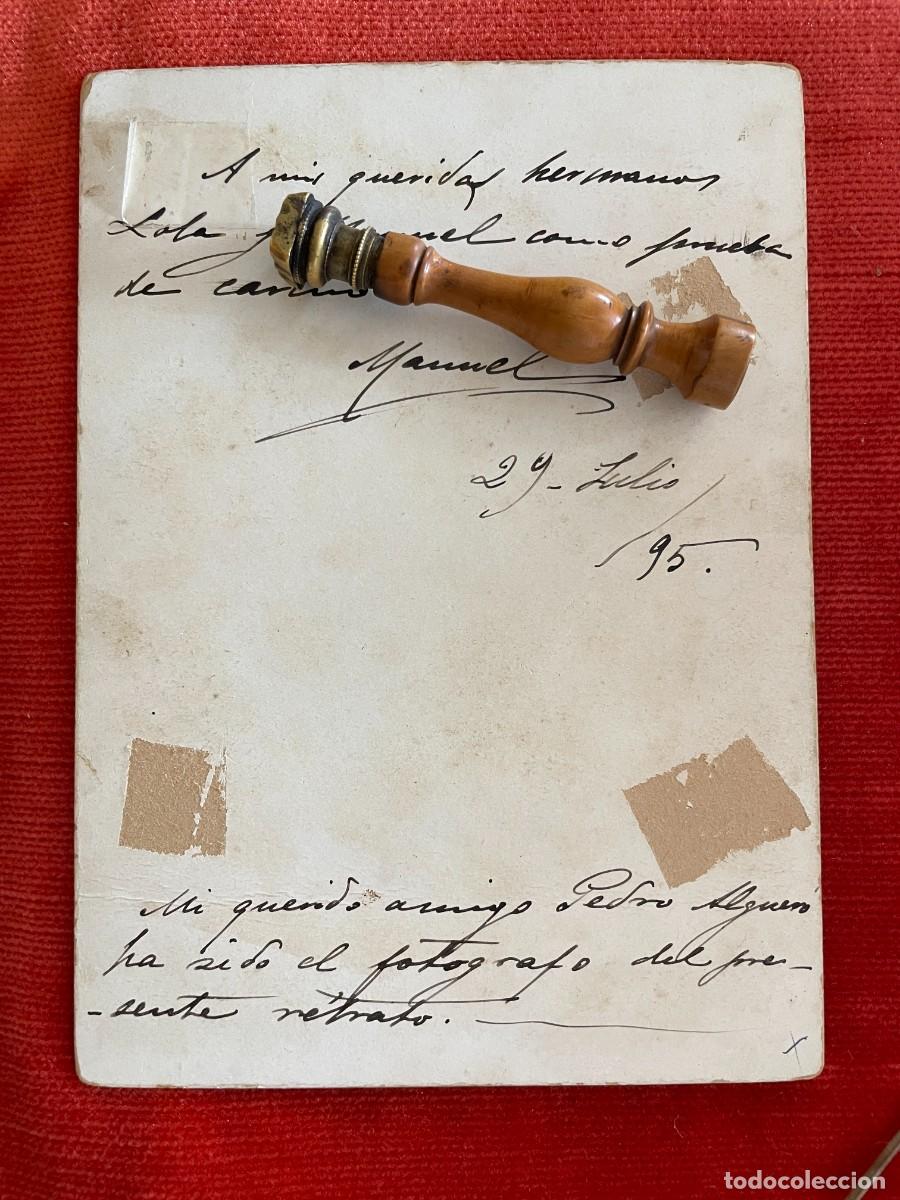 A mis queridos hermanos
Lola y como prueba
de
Manuel
29 - Julio
/95.
Mi querido amigo Pedro Algueró
ha sido el fotografo del pre-
-sente rétrato.
x
todocoleccion